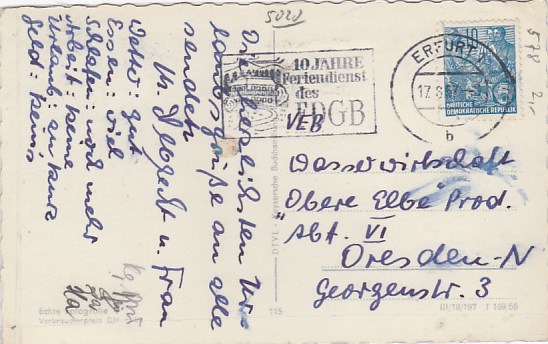 5020
578
Die herzlichsten Ur-
laubsgrüße an alle
senden
u. Frau
Wetter: gut
Essen: viel
Schlafen: noch mehr
Arbeit: keine
Urlaub: zu kurz
Geld: keins
10 JAHRE
Feriendienst
des
FDGB
ERFURT
17.8.57
b
10
DEUTSCHE
DEMOKRATISCHE REPUBLIK
VEB
Wasserwirtschaft
Obere Elbe" Prod.
"Abt. VI
Dresden-N
Georgenstr. 3
Echte
Verbraucherpreis DM
115
III/18/197